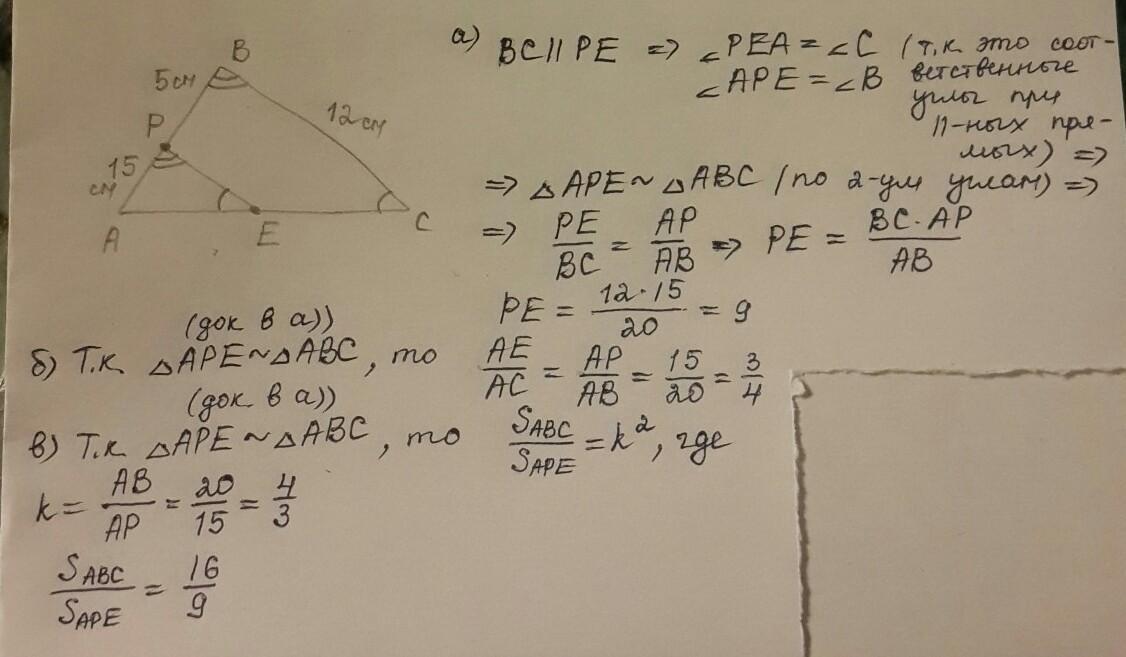 B
5см
12 см
P
15
см
A
E
C
а) BC || PE => ∠PEA = ∠C (т.к. это соот-
∠APE = ∠B ветственные
углы при
||-ных пря-
мых) =>
=> △APE ~ △ABC (по 2-ум углам) =>
=> PE/BC = AP/AB => PE = BC·AP/AB
PE = 12·15/20 = 9
(док в а))
б) Т.к. △APE ~ △ABC, то AE/AC = AP/AB = 15/20 = 3/4
(док. в а))
в) Т.к. △APE ~ △ABC, то S_ABC/S_APE = k², где
k = AB/AP = 20/15 = 4/3
S_ABC/S_APE = 16/9